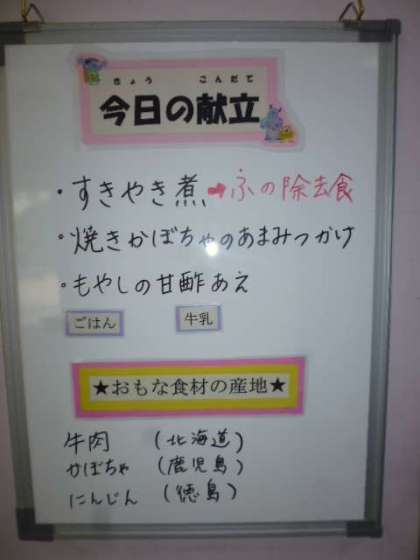 きょう こんだて
今日の献立
・すきやき煮→ふの除去食
・焼きかぼちゃのあまみつかけ
・もやしの甘酢あえ
ごはん 牛乳
★おもな食材の産地★
牛肉 (北海道)
かぼちゃ (鹿児島)
にんじん (徳島)